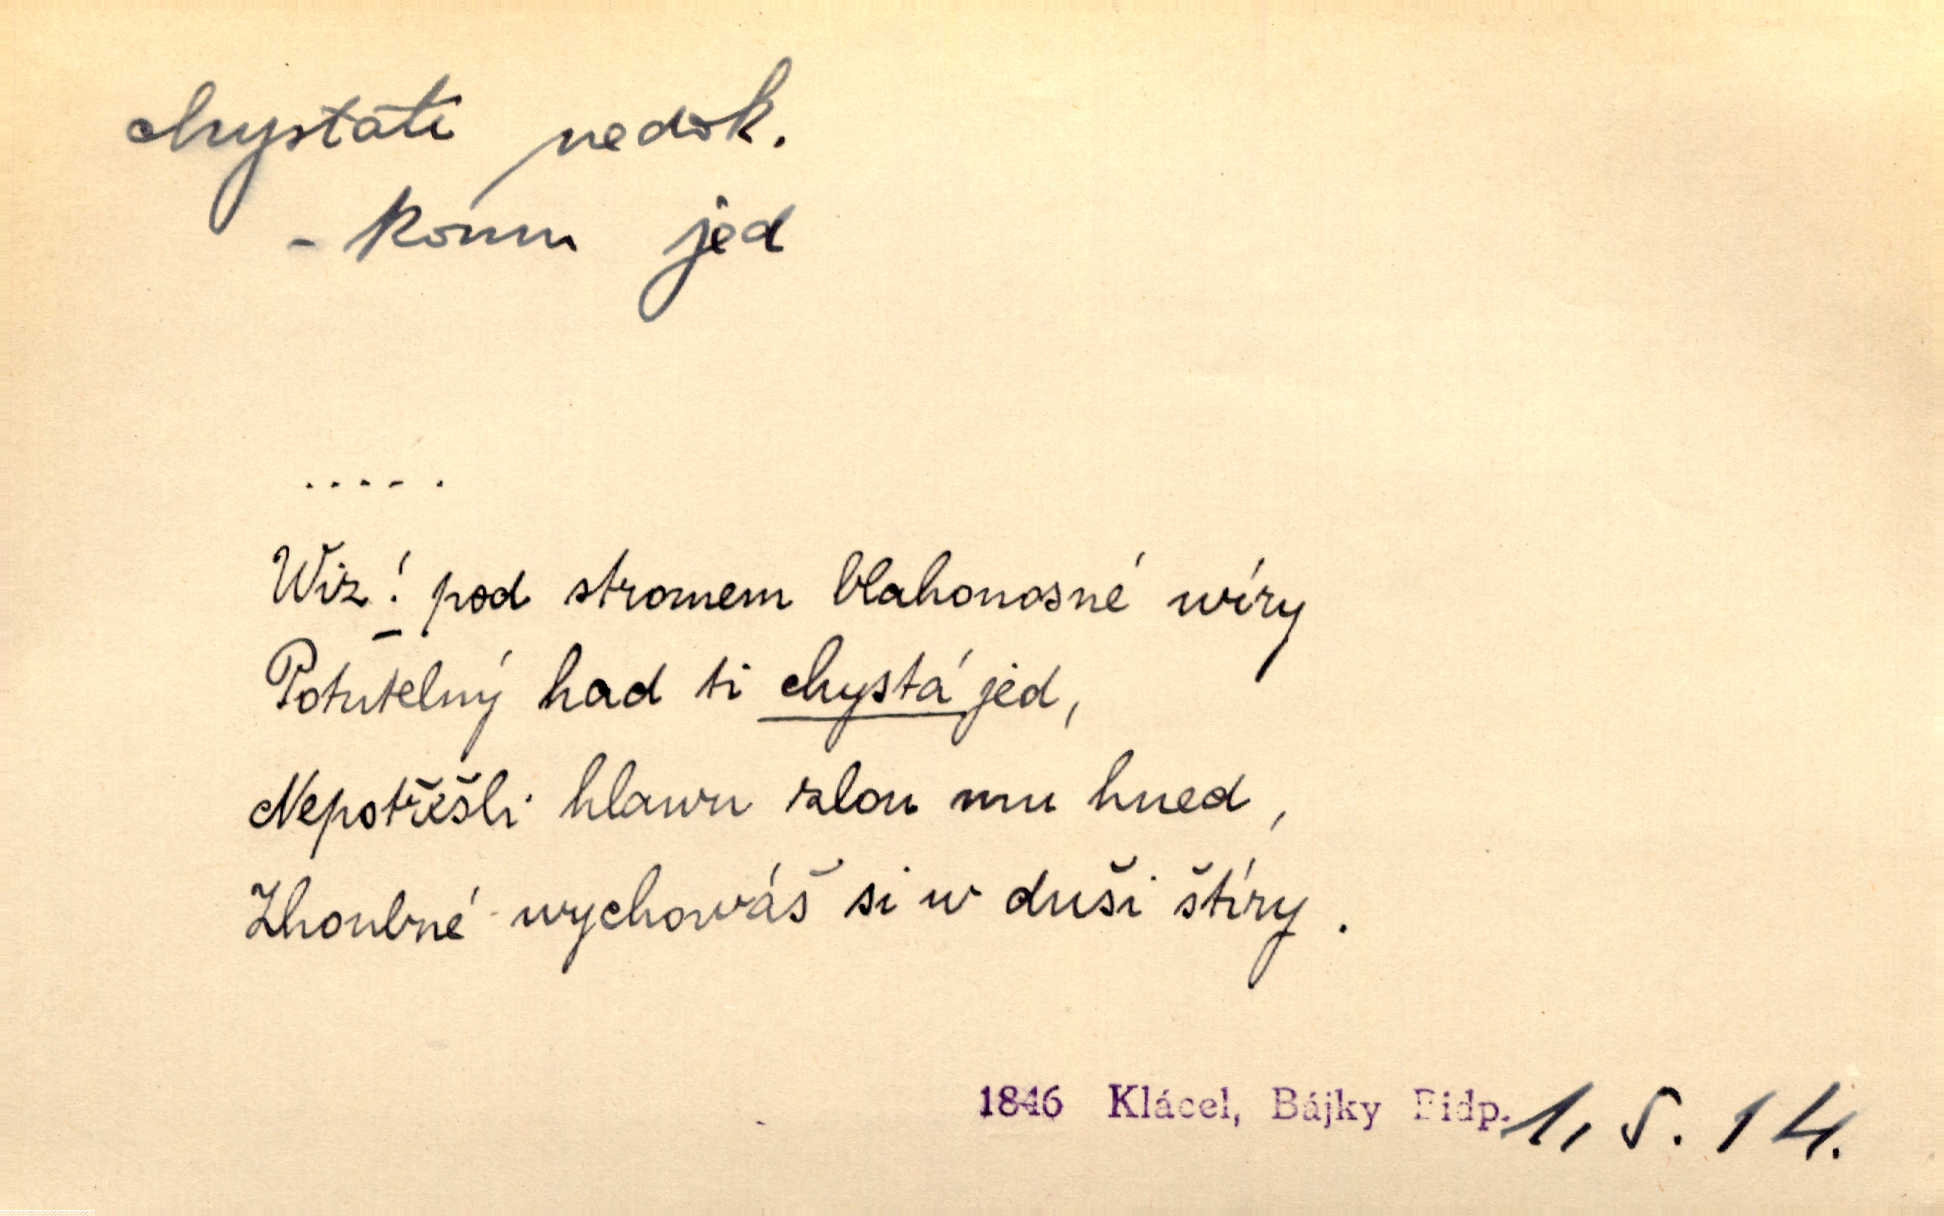 chystati nedok.
- komu jed
.....
Wiz! pod stromem blahonosné wíry
Potutelný had ti chystá jed,
Nepotřěšli hlawu zlou mu hned,
Zhoubné wychowáš si w duši štíry.
1846 Klácel, Bájky Bidp. 1, s. 14.